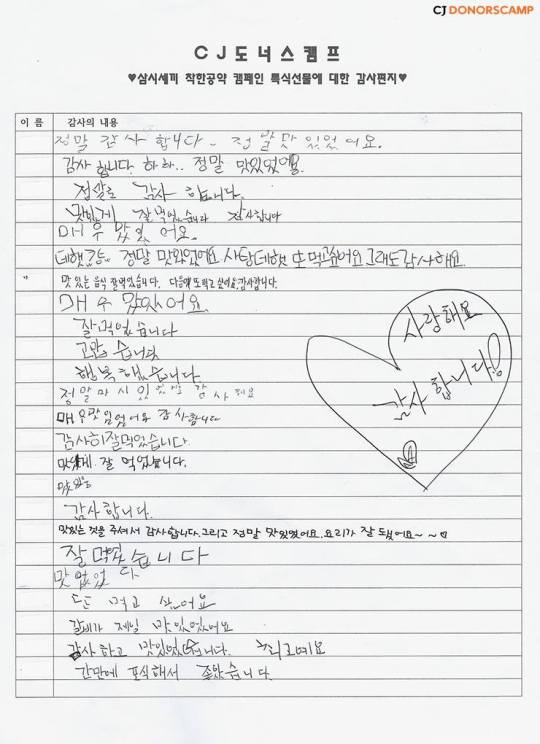 CJ DONORSCAMP
CJ도너스캠프
♥삼시세끼 착한공약 캠페인 특식선물에 대한 감사편지♥
이 름 감사의 내용
정말 감사합니다~ 정말 맛있었어요.
감사합니다. 하하.. 정말 맛있었어용.
정말로 감사 합니다.
맛있게 잘 먹었습니다 감사합니다
매우 맛있어요.
정말 맛있었어요 또 먹고싶어요 그래도 감사해요
맛있는 음식 잘 먹었습니다. 다음에 또 먹고 싶어요, 감사합니다.
매우 맛있어요
잘 먹었습니다
고맙습니다
행복했습니다
정말 마시있었어요 감사해요
매우 맛있었어요 감사합니다
감사히 잘먹었습니다.
맛있게 잘 먹었습니다.
맛있음
감사합니다.
맛있는 것을 주셔서 감사합니다. 그리고 정말 맛있었어요. 요리가 잘 됬었어요~~♡
잘먹었습니다
맛있었다.
또 먹고 싶어요
갈비가 제일 맛있었어요
감사하고 맛있었습니다. 최고예요
간만에 포식해서 좋았습니다.
사랑해요
감사합니다!